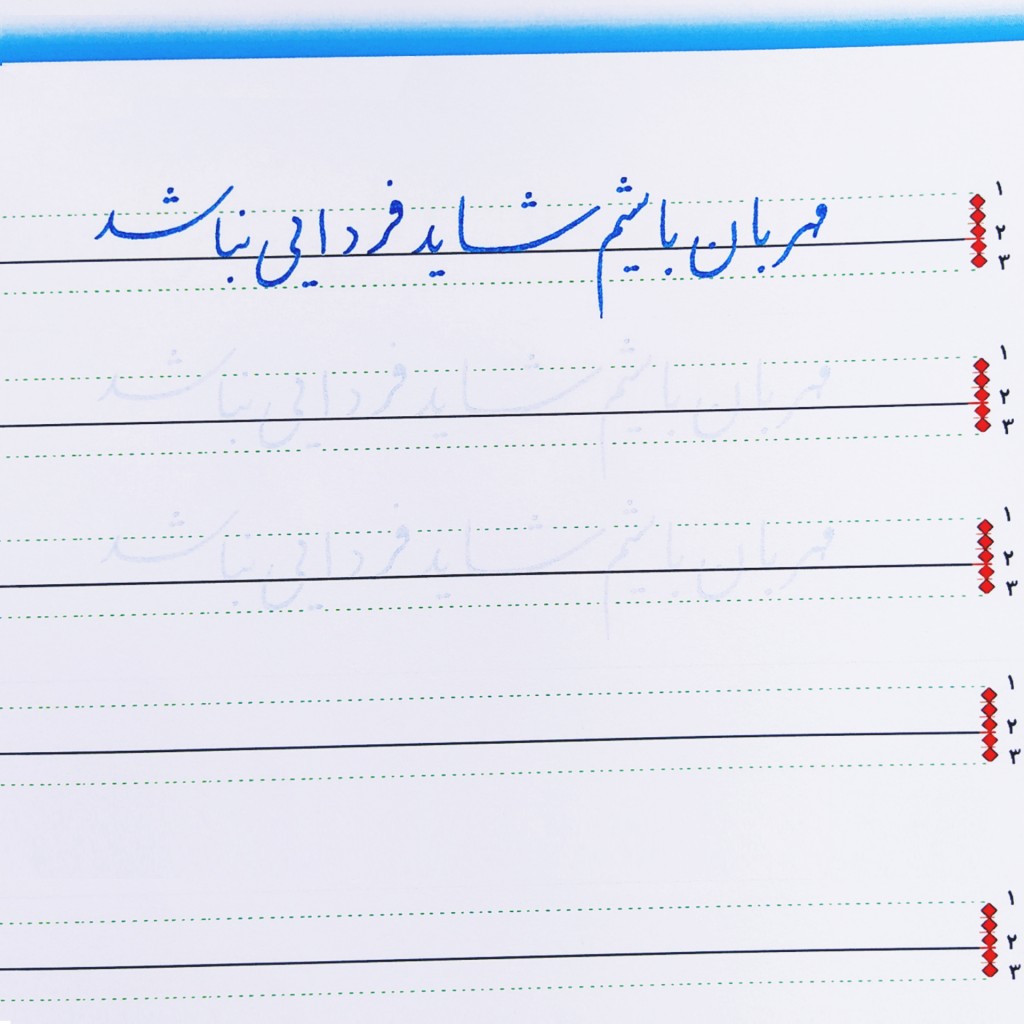 مهربان باشیم شاید فردایی نباشد
۱
۲
۳
مهربان باشیم شاید فردایی نباشد
۱
۲
۳
مهربان باشیم شاید فردایی نباشد
۱
۲
۳
۱
۲
۳
۱
۲
۳